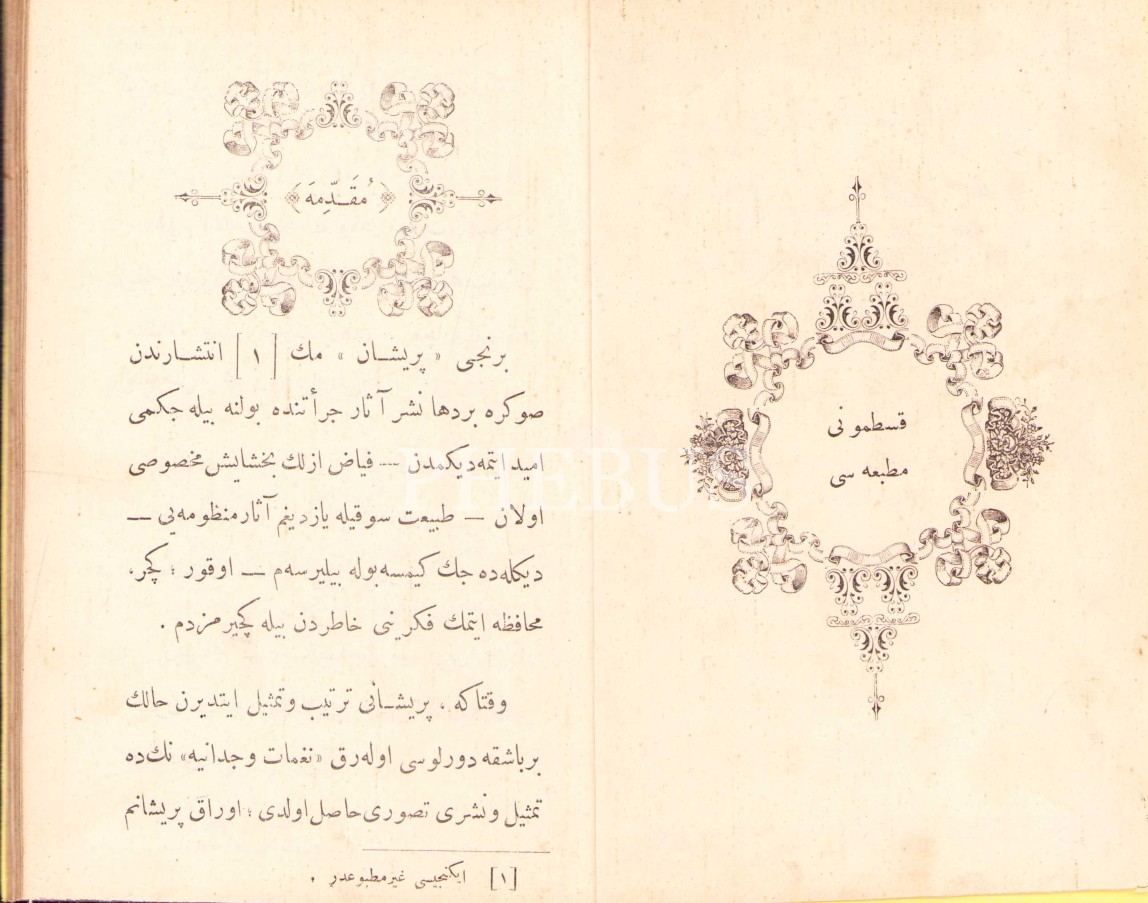 قسطمونی
مطبعه سی
﴿ مُقَدِّمَه ﴾
برنجی « پریشان » مك [ ١ ] انتشارندن
صوكره بردها نشر آثار جرأتنده بولنه بیله جكمی
امید ایتمه‌دیكمدن — فیاض ازلك بخشایش مخصوصی
اولان — طبیعت سوقیله یازدیغم آثار منظومه‌یی —
دیكله‌ده جك كیمسه بوله بیلیرسه‌م — اوقور ؛ كچر،
محافظه ایتمك فكرینی خاطردن بیله كچیرمزدم .
وقتاكه ، پریشانی ترتیب وتمثیل ایتدیرن حالك
برباشقه دورلوسی اوله‌رق «نغمات وجدانیه» نك‌ده
تمثیل ونشری تصوری حاصل اولدی ؛ اوراق پریشانم
[١] ایكنجیسی غیر مطبوعدر .
PHEBUS